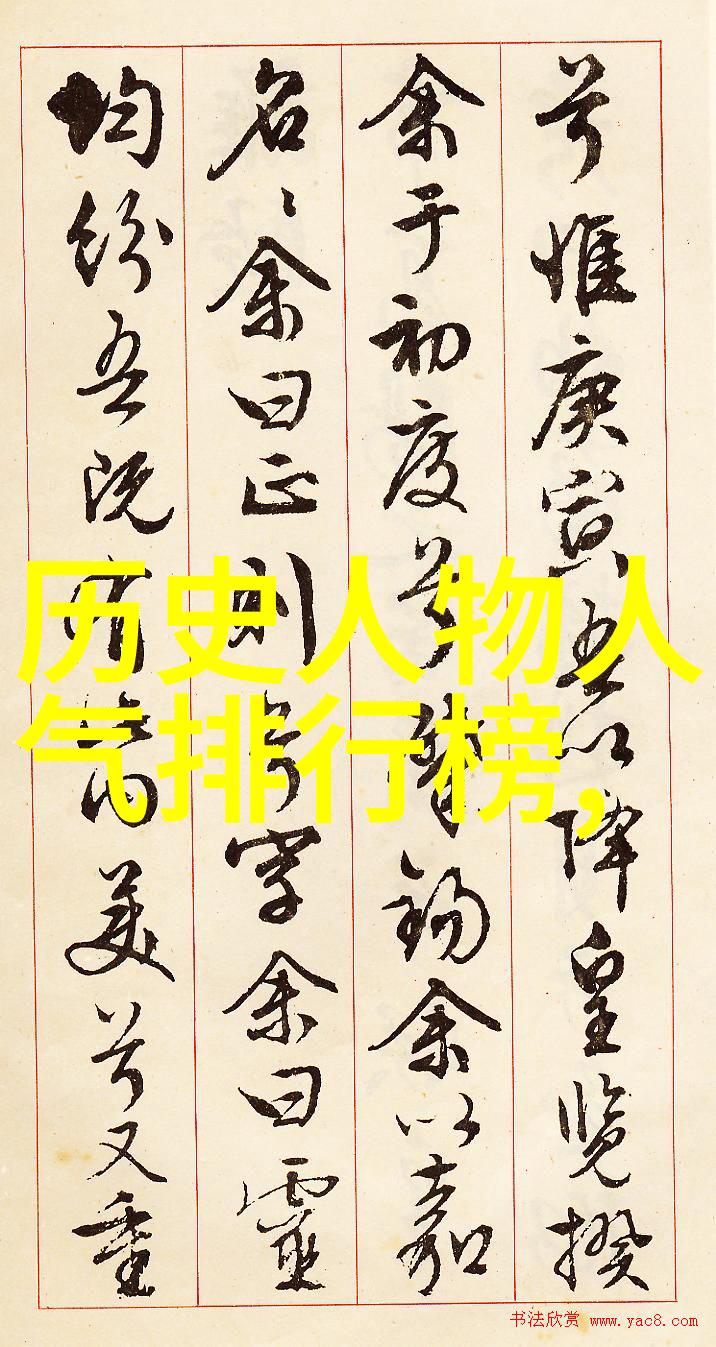 兮惟庚寅吾以降皇览揆
余于初度兮肇锡余以嘉
名〻余曰正则兮字余曰灵
均纷吾既有此内美兮又重
历史人物人
气排行榜，
书法欣赏 www.yac8.com